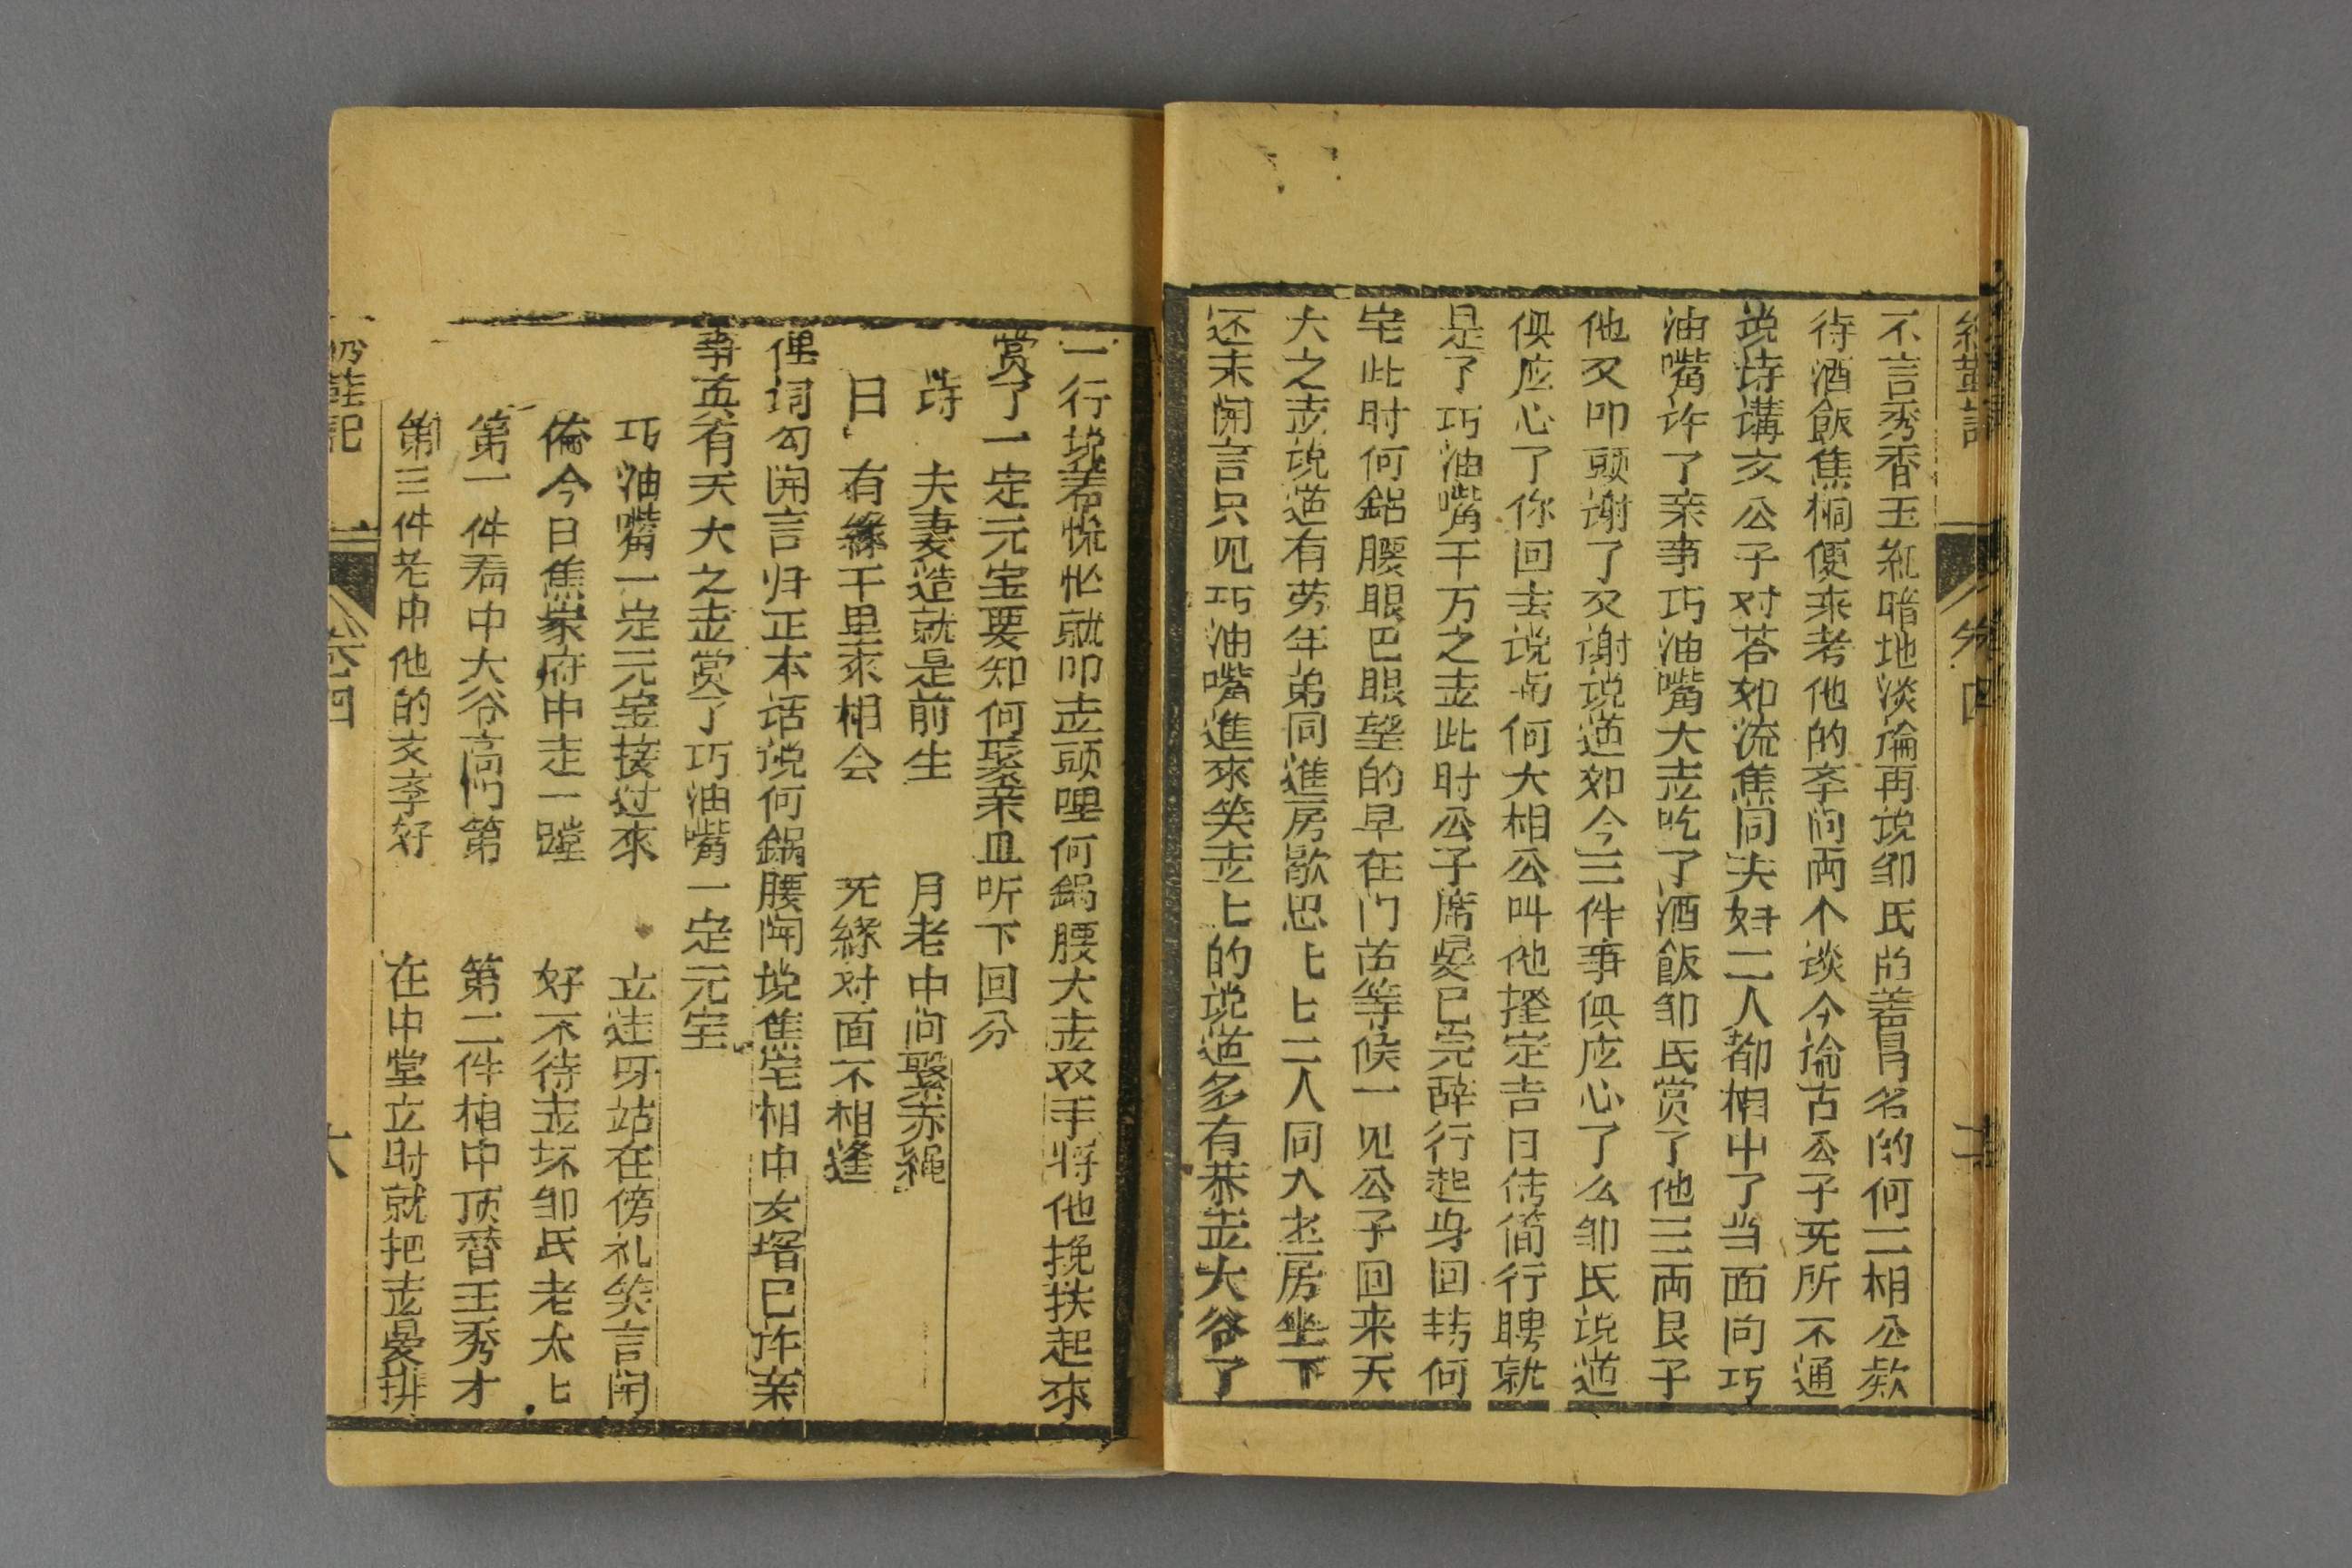 不言秀香玉𥿄暗地淡論再说邹氏的善冒名的何二相公欵
待酒飯焦桐便来考他的李问両个谈今论古公子旡所不通
说诗講文公子对荅如流焦同夫妇二人都相中了当面向巧
油嘴许了亲事巧油嘴大𫝑吃了酒飯邹氏赏了他三両艮子
他又叩頭谢了又谢说道如今三件事俱应心了么邹氏说道
俱应心了你回去说与何大相公叫他擇定吉日传简行聘就
是了巧油嘴千万之𫝑此时公子席晏已完辞行起身回转何
宅此时何鋁腰眼巴眼望的早在门首等候一见公子回来天
大之𫝑说道有劳年弟同進房歇息匕匕二人同入书房坐下
还未開言只见巧油嘴進來笑𫝑匕的说道多有恭𫝑大爷了
卷四
一行说着慌忙就叩𫝑頭哩何鍋腰大𫝑双手将他挽扶起來
赏了一定元宝要知何娶亲且听下回分
诗 夫妻造就是前生 月老中间繫赤繩
曰 有緣千里來相会 旡緣对面不相逢
俚词勾開言归正本话说何鍋腰聞说焦宅相中女壻已许亲
事真有天大之𫝑赏了巧油嘴一定元宝
巧油嘴一定元宝接过來 立𨓏呀站在傍礼笑言開
俺今日焦家府中走一蹚 好不待𫝑坏邹氏老太匕
第一件看中大爷高门第 第二件相中顶替王秀才
第三件老中他的文李好 在中堂立时就把𫝑晏排
卷四